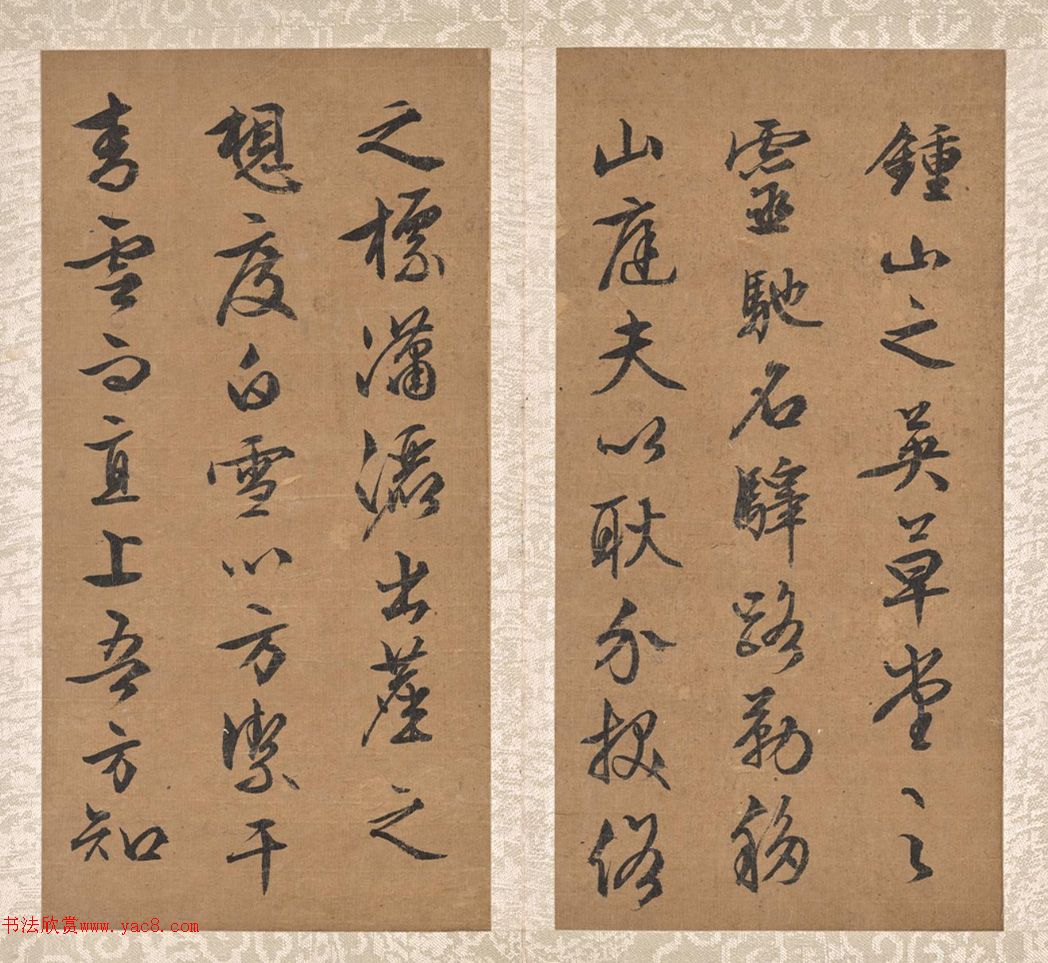 鍾山之英草堂之
靈馳名驛路勒移
山庭夫以耿介拔俗
之標瀟灑出塵之
想度白雪以方潔干
青雲而直上吾方知
书法欣赏www.yac8.com